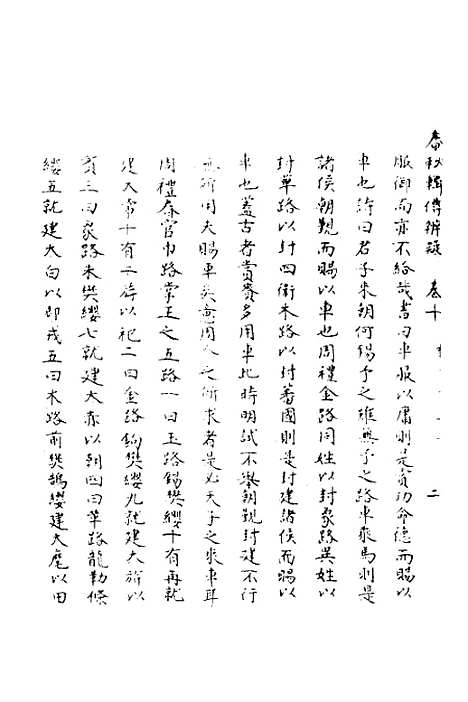 春秋輯傳辨疑 卷十 二
服御尚亦不給哉書曰車服以庸則是賞功命德而賜以
車也詩曰君子來朝何錫予之雖無予之路車乘馬則是
諸侯朝覲而賜以車也周禮金路同姓以封象路異姓以
封革路以封四衛木路以封蕃國則是封建諸侯而賜以
車也蓋古者賞賚多用車此時明試不舉朝覲封建不行
無所用夫賜車矣意周人之所求者是必天子之乘車耳
周禮春官巾路掌王之五路一曰玉路錫樊纓十有再就
建大常十有二斿以祀二曰金路鉤樊纓九就建大旂以
賓三曰象路朱樊纓七就建大赤以朝四曰革路龍勒條
纓五就建大白以即戎五曰木路前樊鵠纓建大麾以田